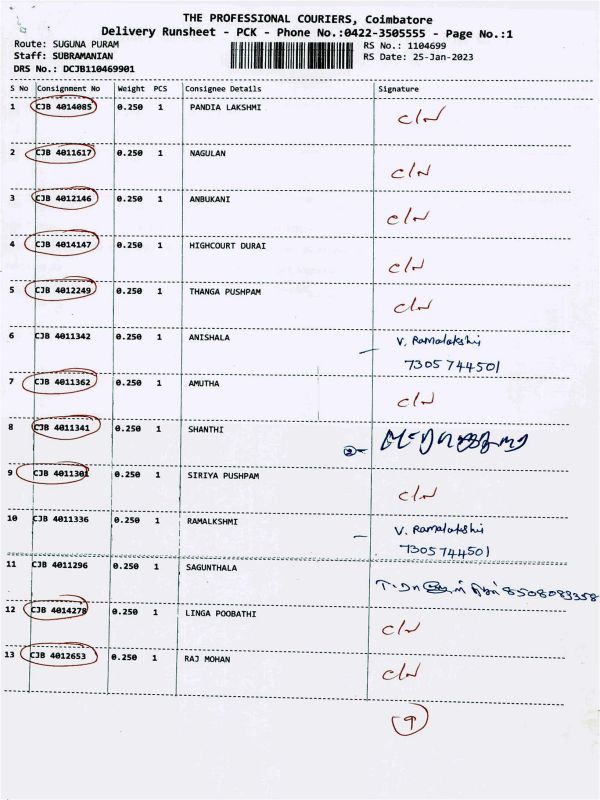 THE PROFESSIONAL COURIERS, Coimbatore
Delivery Runsheet - PCK - Phone No.:0422-3505555 - Page No.:1
Route: SUGUNA PURAM RS No.: 1104699
Staff: SUBRAMANIAN RS Date: 25-Jan-2023
DRS No.: DCJB110469901
S No Consignment No Weight PCS Consignee Details Signature
1 CJB 4014085 0.250 1 PANDIA LAKSHMI C/N
2 CJB 4011617 0.250 1 NAGULAN C/N
3 CJB 4012146 0.250 1 ANBUKANI C/N
4 CJB 4014147 0.250 1 HIGHCOURT DURAI C/N
5 CJB 4012249 0.250 1 THANGA PUSHPAM C/N
6 CJB 4011342 0.250 1 ANISHALA V. Ramalakshi
7305744501
7 CJB 4011362 0.250 1 AMUTHA C/N
8 CJB 4011341 0.250 1 SHANTHI
9 CJB 4011301 0.250 1 SIRIYA PUSHPAM C/N
10 CJB 4011336 0.250 1 RAMALKSHMI V. Ramalakshi
7305744501
11 CJB 4011296 0.250 1 SAGUNTHALA 8508083358
12 CJB 4014278 0.250 1 LINGA POOBATHI C/N
13 CJB 4012653 0.250 1 RAJ MOHAN C/N
9